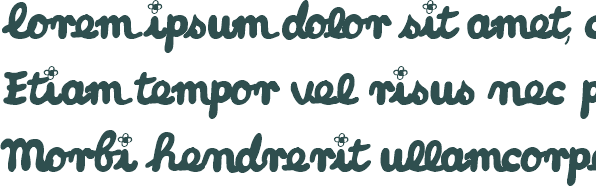 lorem ipsum dolor sit amet, c
Etiam tempor vel risus nec p
Morbi hendrerit ullamcorpe